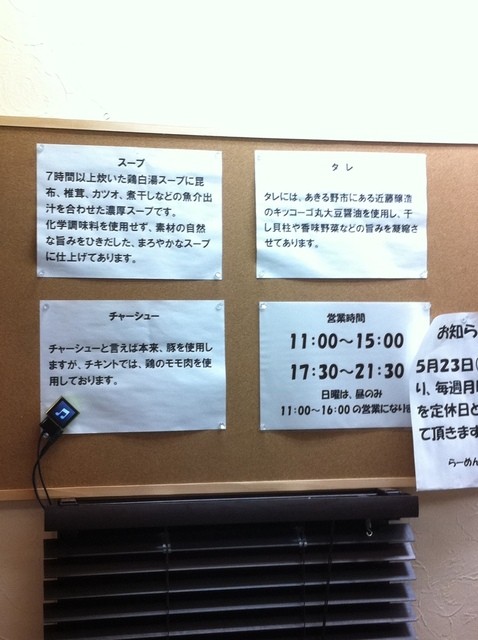 スープ
7時間以上炊いた鶏白湯スープに昆
布、椎茸、カツオ、煮干しなどの魚介出
汁を合わせた濃厚スープです。
化学調味料を使用せず、素材の自然
な旨みをひきだした、まろやかなスープ
に仕上げてあります。
タレ
タレには、あきる野市にある近藤醸造
のキッコーゴ丸大豆醤油を使用し、干
し貝柱や香味野菜などの旨みを凝縮さ
せてあります。
チャーシュー
チャーシューと言えば本来、豚を使用し
ますが、チキントでは、鶏のモモ肉を使
用しております。
営業時間
11:00～15:00
17:30～21:30
日曜は、昼のみ
11:00～16:00の営業になり
お知ら
5月23日(
り、毎週月
を定休日と
て頂きます
らーめん